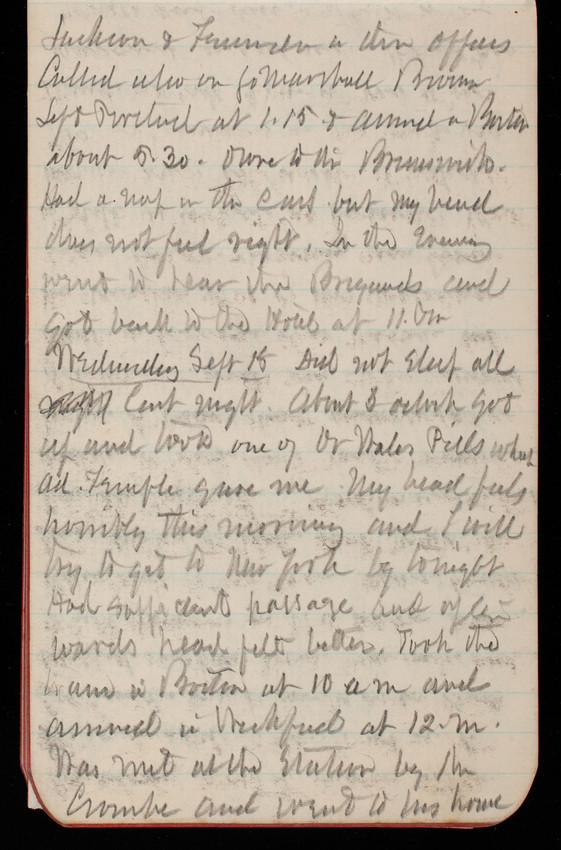 Jackson & in their offices
Called also on Marshall Brown
Left Portland at 1.15 & arrived in Boston
about 5.30. Drove to the Brunswick.
Had a nap in the cars but my head
does not feel right. In the Evening
went to hear the Brigands and
got back to the Hotel at 11. Oc
Wednesday Sept 18 Did not sleep all
last night. About 3 oclock got
up and took one of Dr Hales Pills which
Ad. Temple gave me My head feels
horribly this morning and I will
try to get to New York by tonight
Had sufficient passage and after
wards head felt better. Took the
train in Boston at 10 a m and
arrived in at 12 m.
Was met at the Station by Mr
Crombe and went to his home